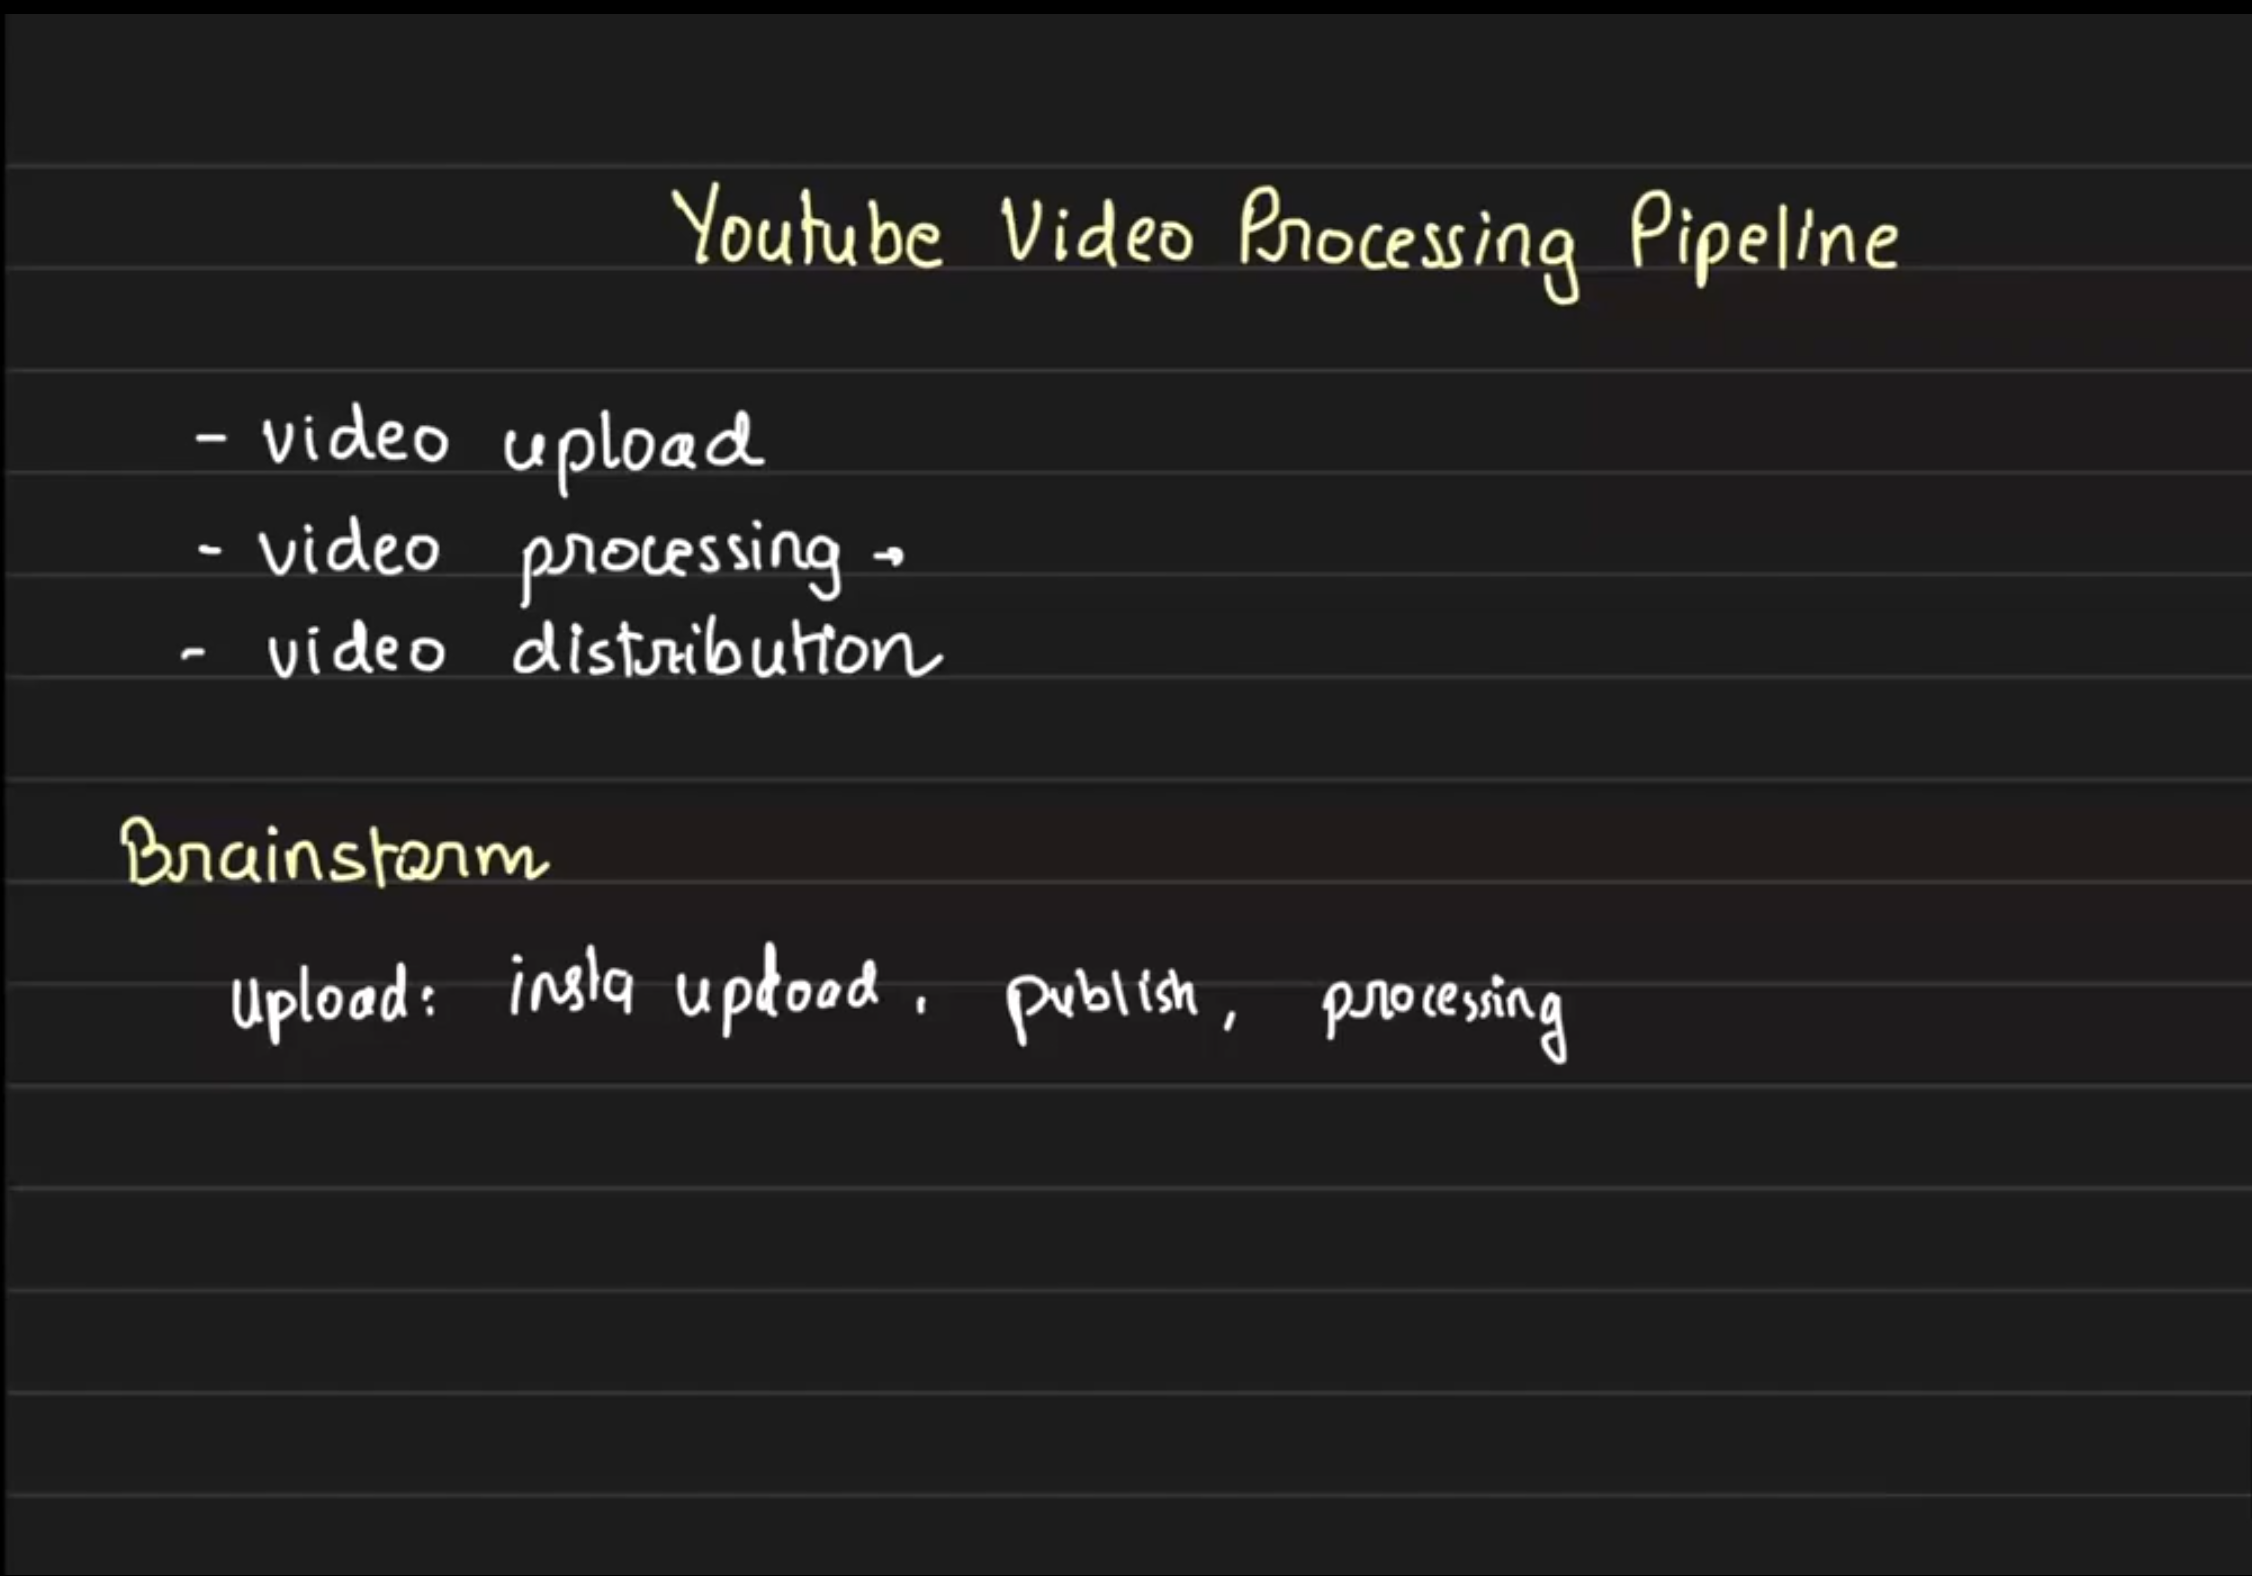 Youtube Video Processing Pipeline
- video upload
- video processing →
- video distribution
Brainstorm
Upload: insta upload, publish, processing